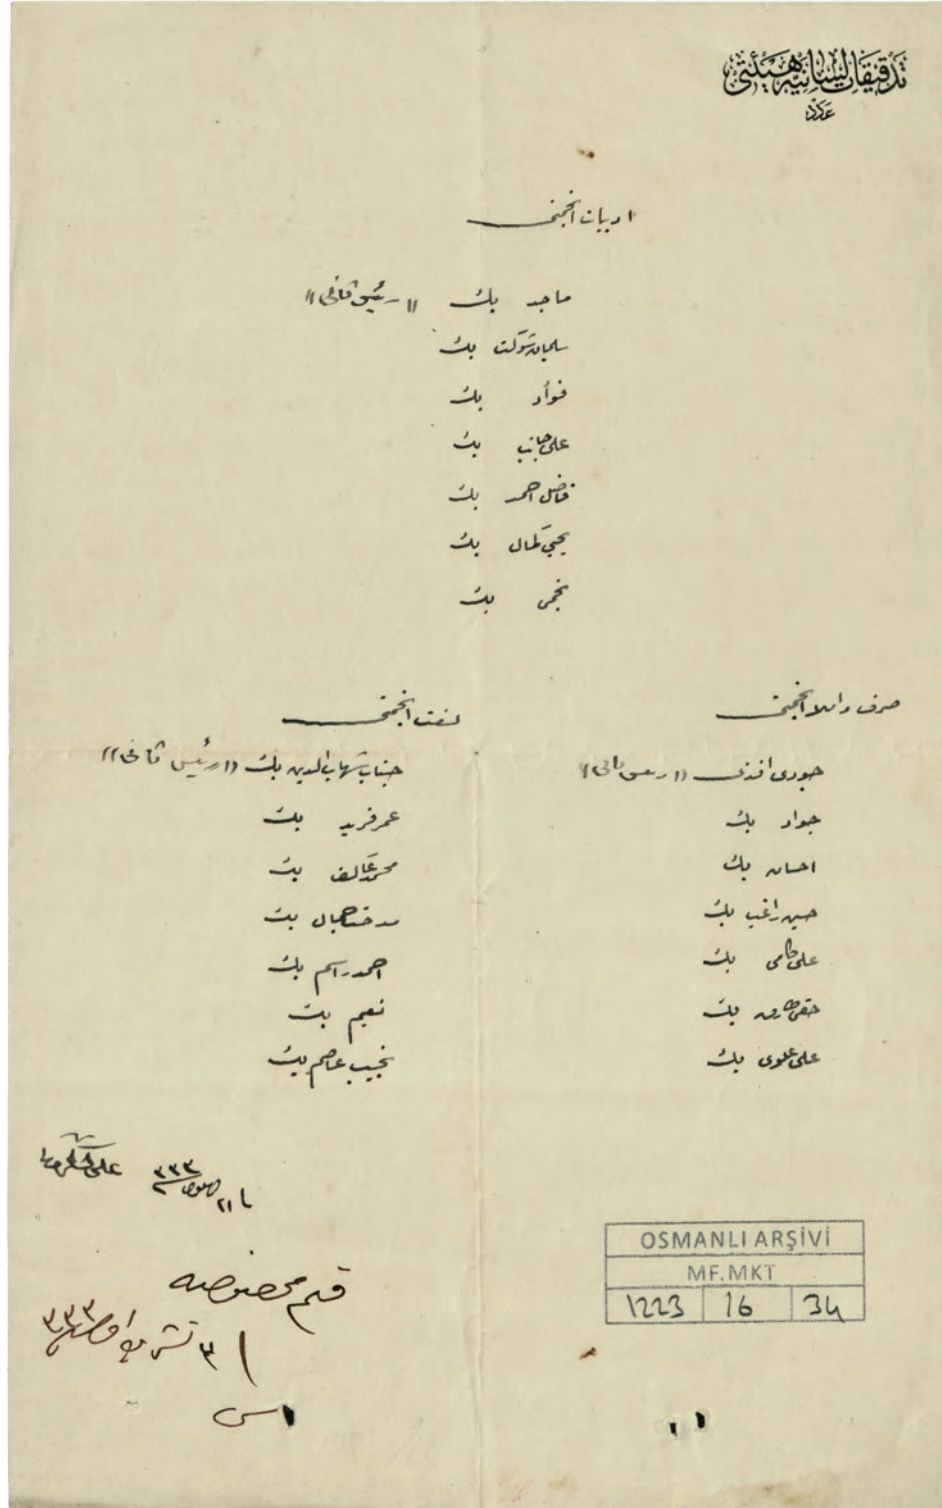 تدقيقات لسانيه هيئتى
عدد
ادبيات انجمنى
ماجد بك « رئيس ثانى »
سليمان شوكت بك
فؤاد بك
على جانب بك
فاضل احمد بك
يحيى كمال بك
نجمى بك
صرف و املا انجمنى
جودى افندى « رئيس ثانى »
جواد بك
احسان بك
حسين راغب بك
على كامى بك
حقى طارق بك
على علوى بك
لغت انجمنى
جناب شهاب الدين بك « رئيس ثانى »
عمر فريد بك
محمد عاكف بك
مدحت جمال بك
احمد راسم بك
نعيم بك
نجيب عاصم بك
٢١
٣٣٣
على
قلم مخصوصه
٣ تشرين اول ٣٣٣
OSMANLI ARŞİVİ
MF.MKT
1223 16 34